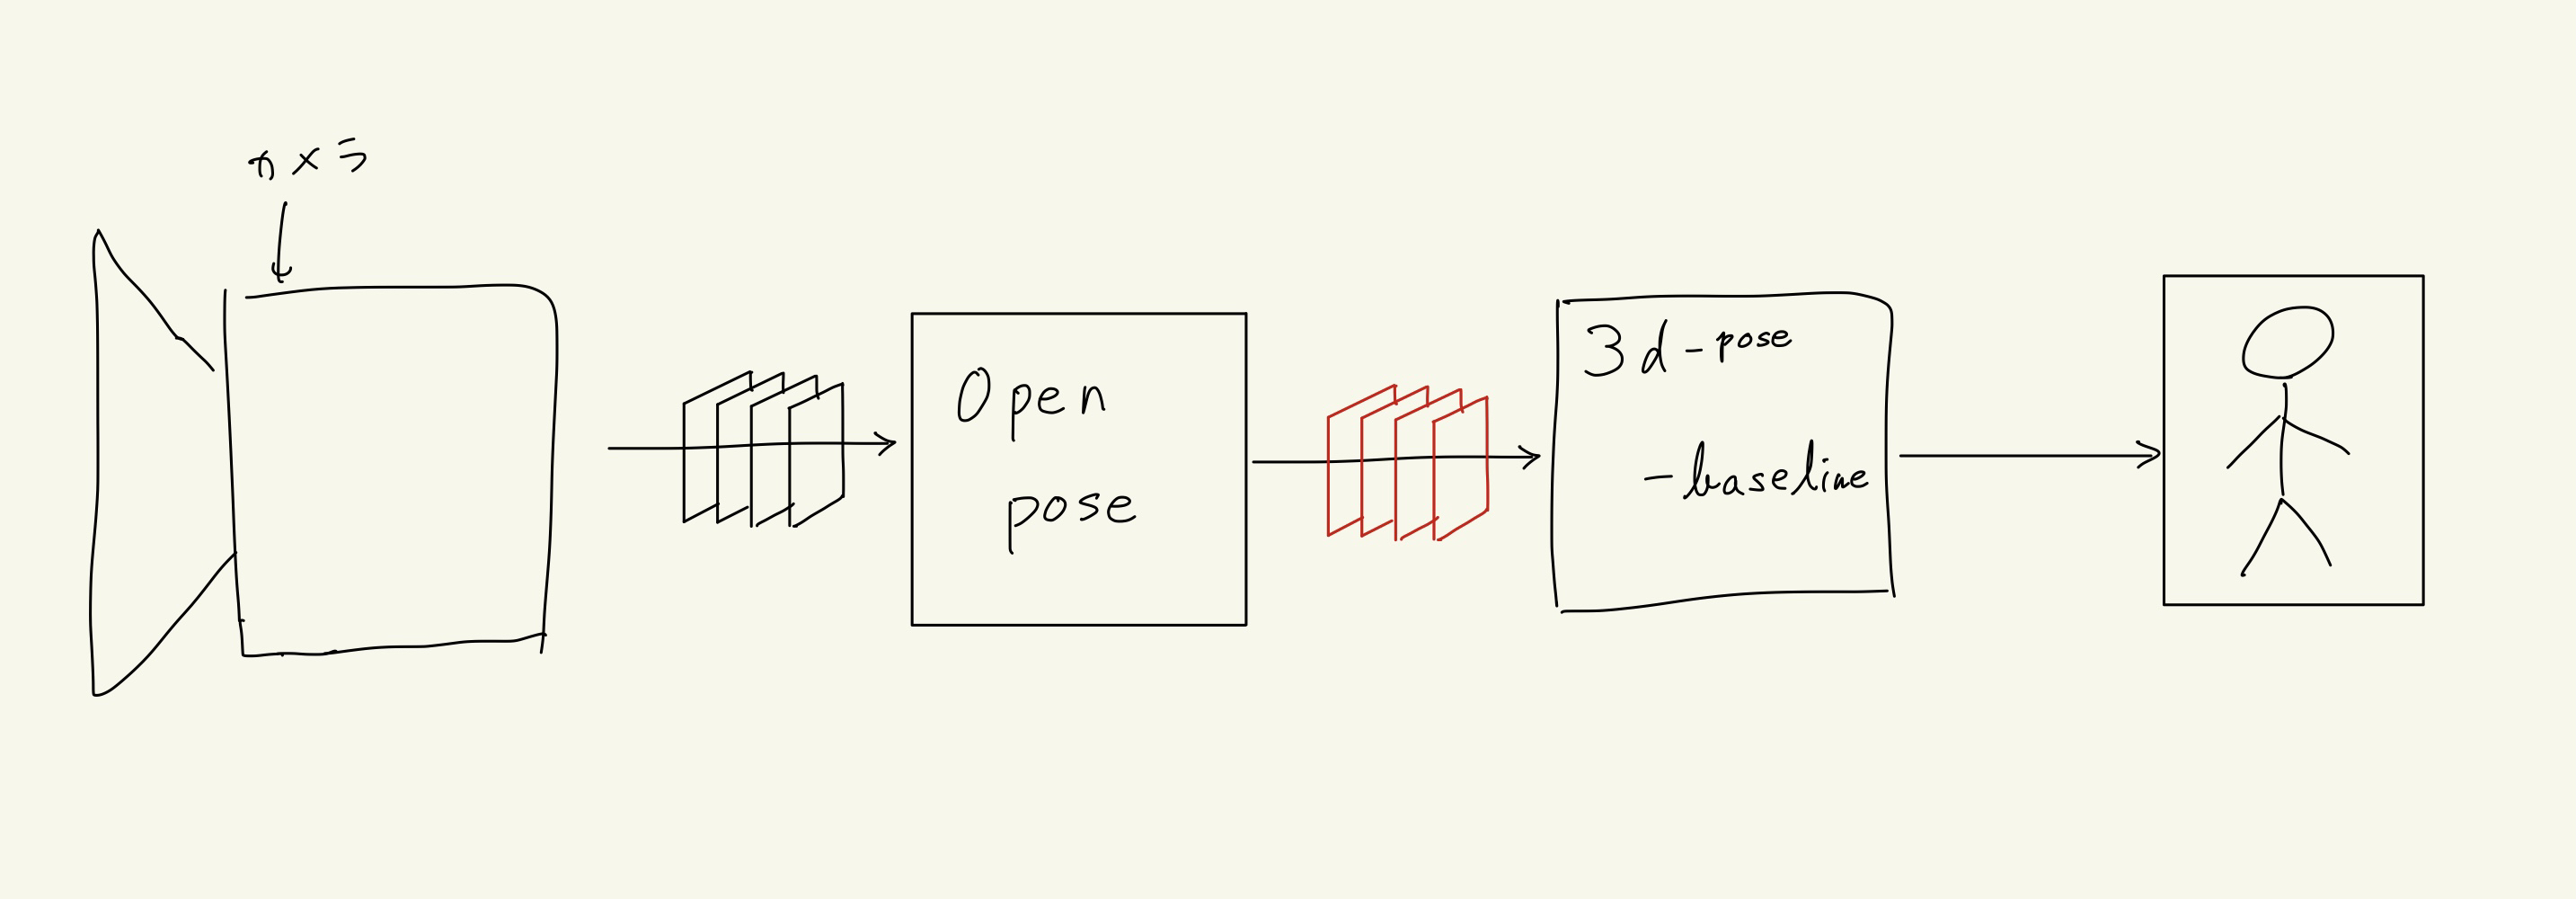 カメラ
Open
pose
3d-pose
-baseline